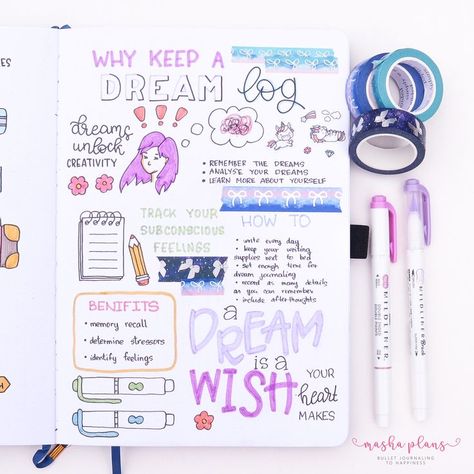 WHY KEEP A
DREAM log
dreams
unlock
CREATIVITY
• REMEMBER THE DREAMS
• ANALYSE YOUR DREAMS
• LEARN MORE ABOUT YOURSELF
TRACK YOUR
SUBCONSCIOUS
FEELINGS
HOW TO
• write every day
• keep your writing
supplies next to bed
• set enough time for
dream journaling
• record as many details
as you can remember
• include afterthoughts
BENIFITS
• memory recall
• determine stressors
• identify feelings
a
DREAM
is a
WISH
YOUR
heart
MAKES
MILDLINER
MILDLINER Brush
masha plans
BULLET JOURNALING
TO HAPPINESS